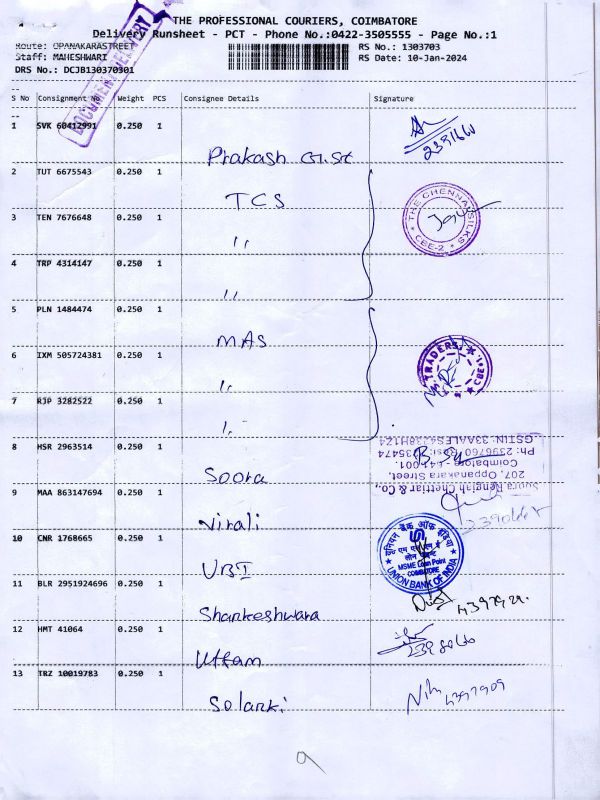 THE PROFESSIONAL COURIERS, COIMBATORE
Delivery Runsheet - PCT - Phone No.:0422-3505555 - Page No.:1
Route: OPANAKARASTREET
RS No.: 1303703
Staff: MAHESHWARI
RS Date: 10-Jan-2024
DRS No.: DCJB130370301
S No Consignment No Weight PCS Consignee Details Signature
1 SVK 60412991 0.250 1
Prakash Gi.St
2 TUT 6675543 0.250 1
TCS
3 TEN 7676648 0.250 1
THE CHENNAI SILKS
CBE-2
4 TRP 4314147 0.250 1
5 PLN 1484474 0.250 1
MAS
6 IXM 505724381 0.250 1
TRADERS
CBE-1
7 RJP 3282522 0.250 1
8 HSR 2963514 0.250 1
Soora
Soora Rengiah Chettriar & Co.,
207, Oppanakara Street,
Coimbatore - 641 001.
Ph: 2396760
9 MAA 863147694 0.250 1
Virali
10 CNR 1768665 0.250 1
UBI
यूनियन बैंक ऑफ इंडिया
MSME Loan Point
COIMBATORE
UNION BANK OF INDIA
11 BLR 2951924696 0.250 1
Shankeshwara
12 HMT 41064 0.250 1
Uttam
13 TRZ 10019783 0.250 1
Solanki